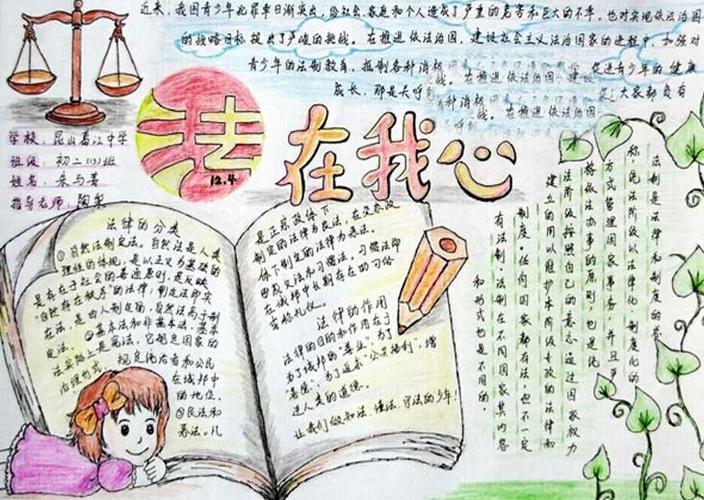 近来，我国青少年犯罪率日渐突出，给社会、家庭和个人造成了严重的危害和巨大的不幸，也对实现依法治国
的战略目标提出了严峻的挑战。在推进依法治国，建设社会主义法治国家的进程中，加强对
青少年的法制教育，抵制各种消极
促进青少年的健康
成长，那是关乎
大家都负有
学校：昆山葛江中学
班级：初二(13)班
姓名：朱与姜
指导老师：陶
法
12.4
在我心
法律的分类
①自然法制定法。自然法是人类
理性的体现，是以正义为基础的
是存在于社会的普遍原则，是反映
自然存在秩序"的法律；制定法即实
在法，是由人制定的，自然法高于制
定法。②基本法和非基本法。基本
法实际上是宪法，它规定国家的
治理形式，规定统治者和公民
在城邦中
的地位。
③良法和
恶法。凡
是正宗政体下
制定的法律为良法，在变态政
体下制定的法律为恶法。
④成文法和习惯法。习惯法即
在城邦中长期存在的习俗
法律的作用
法律的目的和作用在于
为了城邦的"善业"，为了
促进"公共福利"，增
进人类的道德。
让我们做知法、懂法、守法的少年！
法制是法律和制度的总
称，统治阶级以法律化、制度化的
方式管理国家事务，并且严
格依法办事的原则，也是统
治阶级按照自己的意志通过国家权力
建立的用以维护本阶级专政的法律和
制度。任何国家都有法制，但不一定
有法制。法制在不同国家其内容
和形式也是不同的。